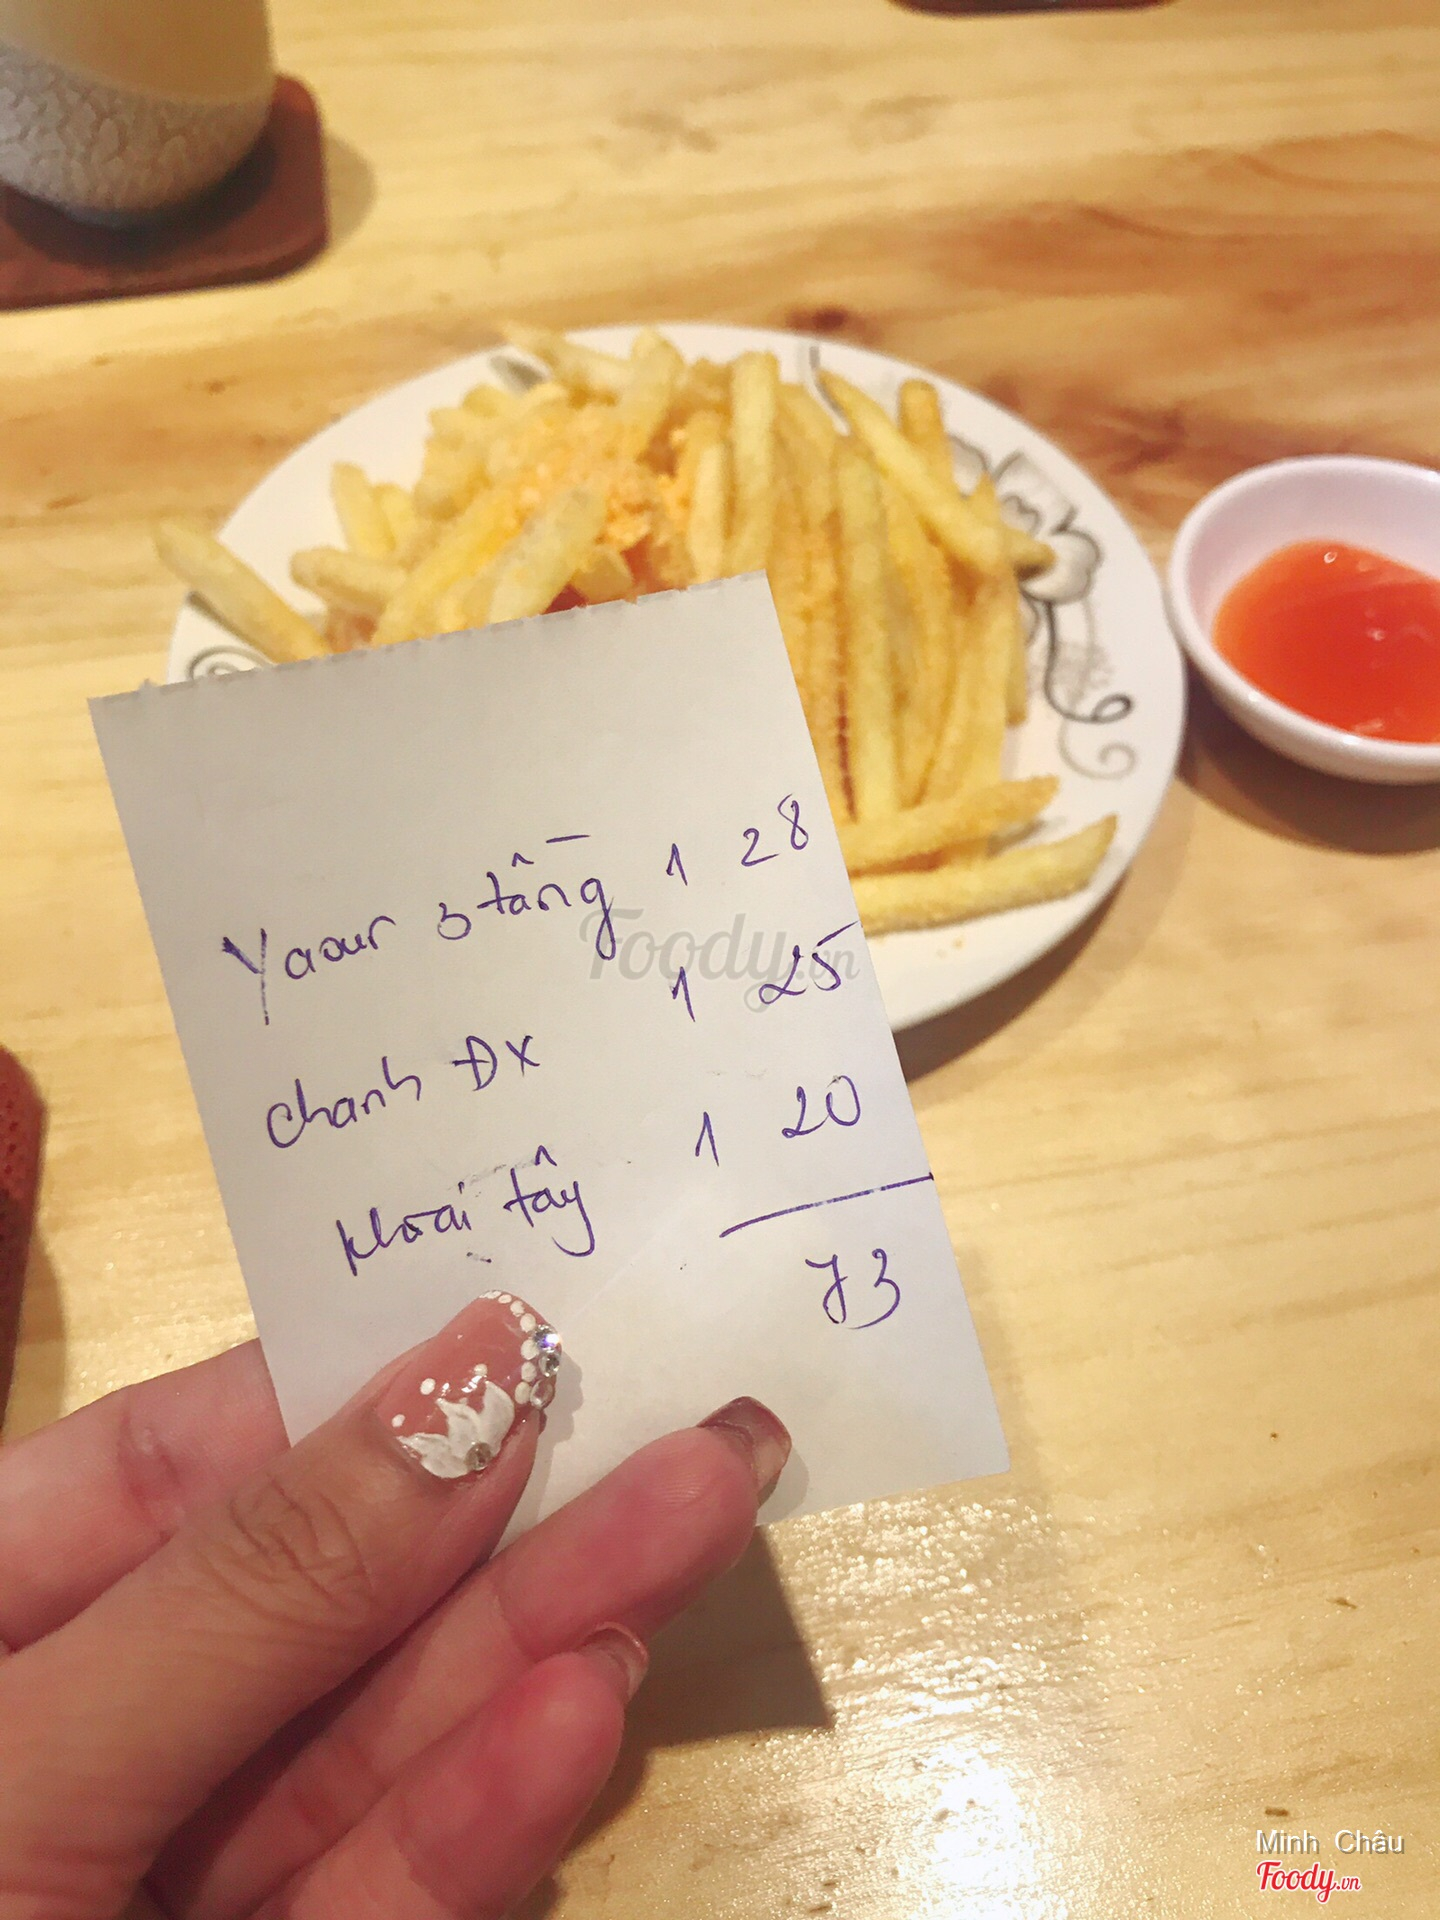 Yaour 3 tầng 1 28
chanh ĐX 1 25
khoai tây 1 20
73
Foody.vn
Minh Châu
Foody.vn